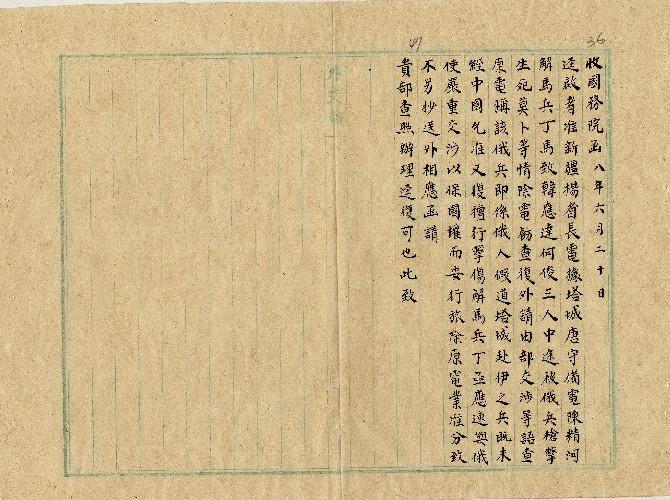 36
收國務院函 八年六月二十日
逕啟者准新疆楊省長電據塔城唐守備電陳精河
解馬兵丁馬致韓應達何俊三人中途被俄兵槍擊
生死莫卜等情除電飭查復外請由部交涉等語查
原電稱該俄兵即係俄人假道塔城赴伊之兵既未
經中國允准又復擅行擊傷解馬兵丁亟應速與俄
使嚴重交涉以保國權而安行旅除原電業准分致
不另抄送外相應函請
貴部查照辦理逕復可也此致